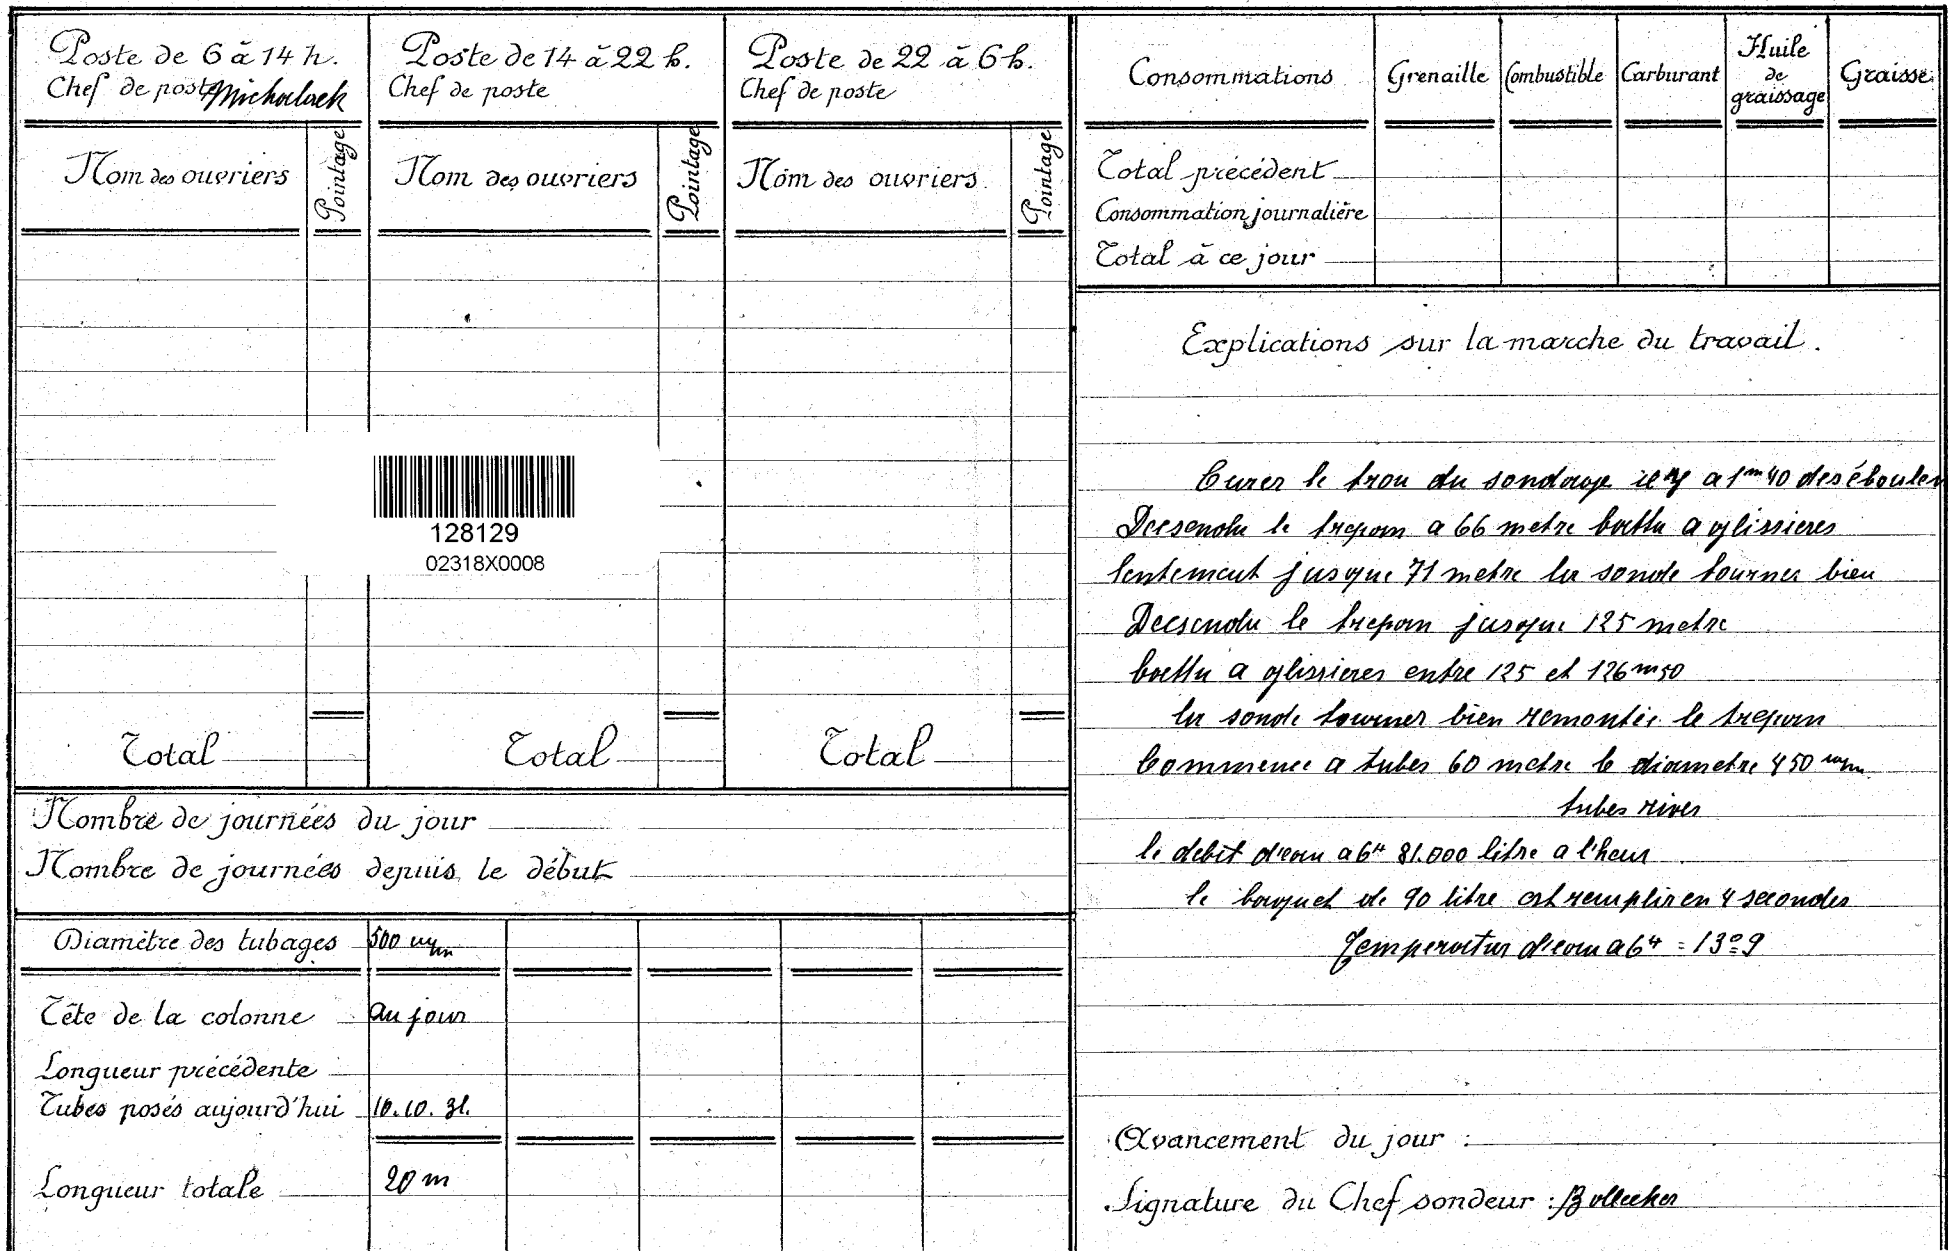 Poste de 6 à 14 h.
Chef de poste
Poste de 14 à 22 h.
Chef de poste
Poste de 22 à 6 h.
Chef de poste
Nom des ouvriers
Pointage
Nom des ouvriers
Pointage
Nom des ouvriers
Pointage
128129
02318X0008
Total
Total
Total
Nombre de journées du jour
Nombre de journées depuis le début
Diamètre des tubages 500 mm
Tête de la colonne au jour
Longueur précédente
Tubes posés aujourd'hui 10.10.31.
Longueur totale 20 m
Consommations
Grenaille
Combustible
Carburant
Huile
de
graissage
Graisse
Total précédent
Consommation journalière
Total à ce jour
Explications sur la marche du travail.
Curer le trou du sondage il y a 1m40 des éboulem
Descendu le trepan a 66 metre battu a glissieres
lentement jusque 71 metre la sonde tourner bien
Descendu le trepan jusque 125 metre
battu a glissieres entre 125 et 126m50
la sonde tourner bien remontée le trepan
Commence a tubes 60 metre le diametre 450 mm
tubes rives
le debit d'eau a 6H 81.000 litre a l'heur
le baquet de 90 litre est remplir en 4 secondes
Temperatur d'eau a 6H = 13°9
Avancement du jour :
Signature du Chef sondeur :